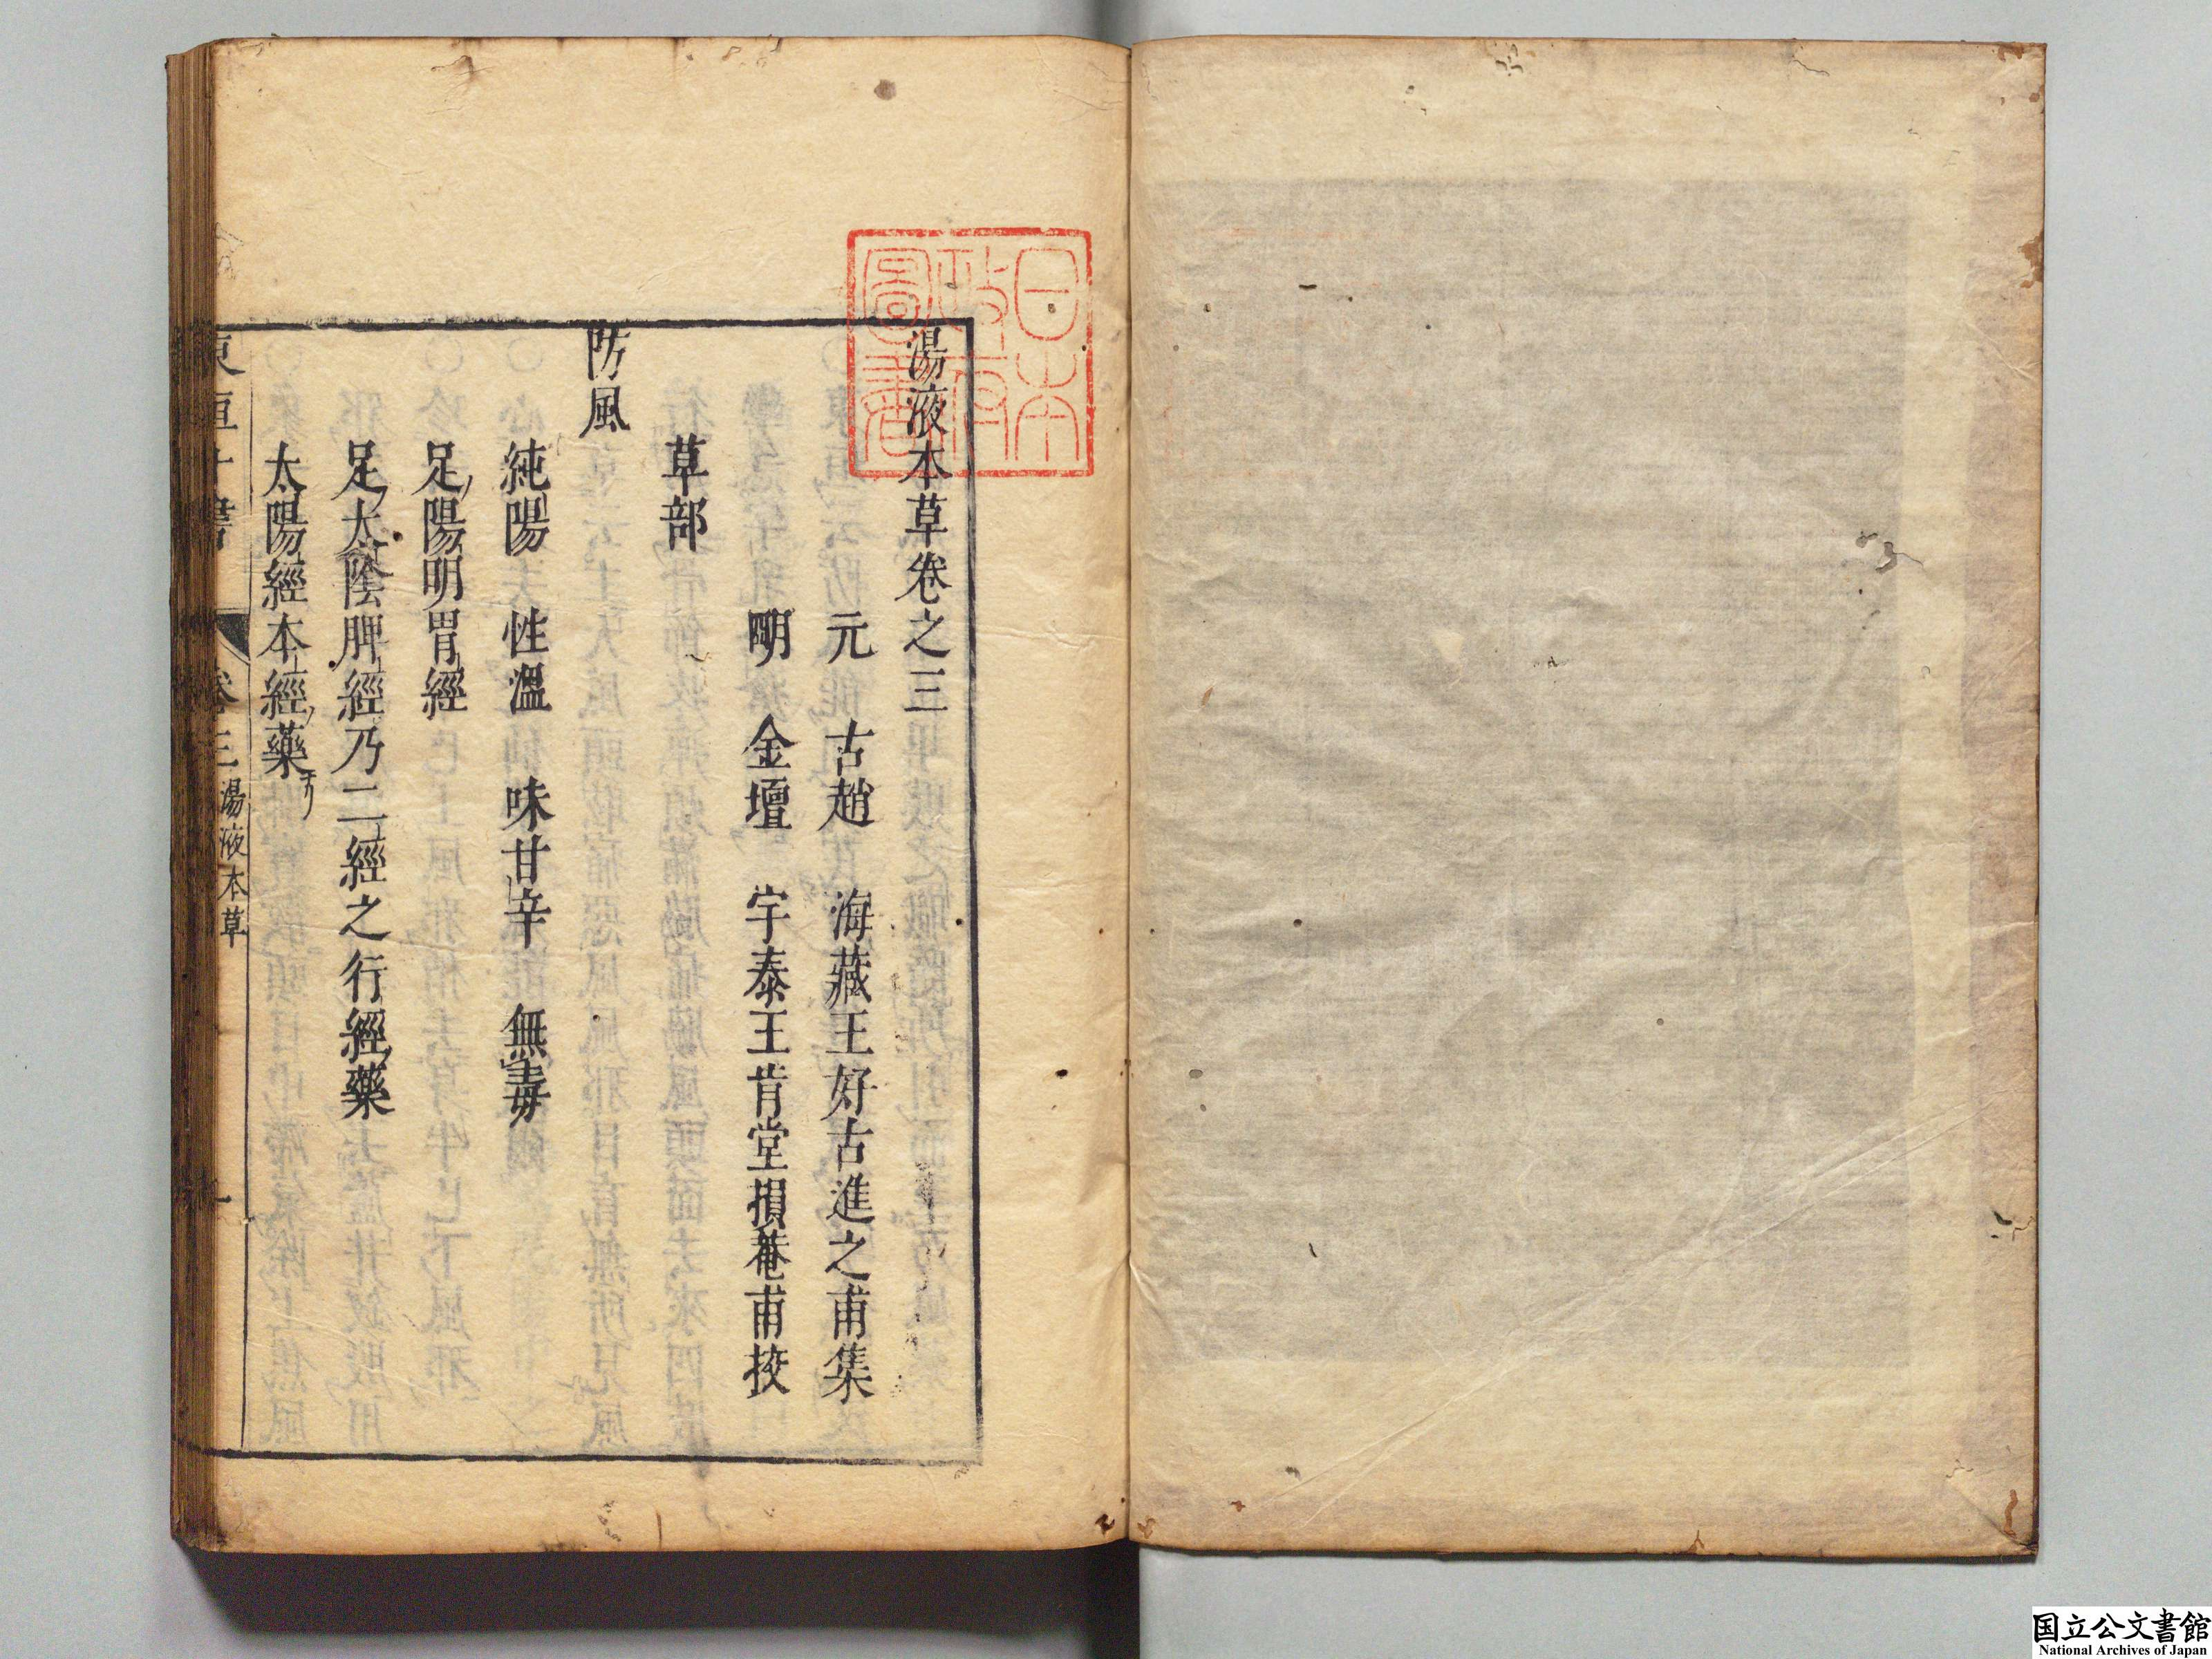 湯液本草卷之三
元　古趙　海藏王好古進之甫集
明　金壇　宇泰王肯堂損菴甫挍
草部
防風
純陽　性溫　味甘辛　無毒
足陽明胃經
足太陰脾經乃二經之行經藥
太陽經本經藥
東垣十書　卷三　湯液本草　一
日本政府圖書
国立公文書館
National Archives of Japan